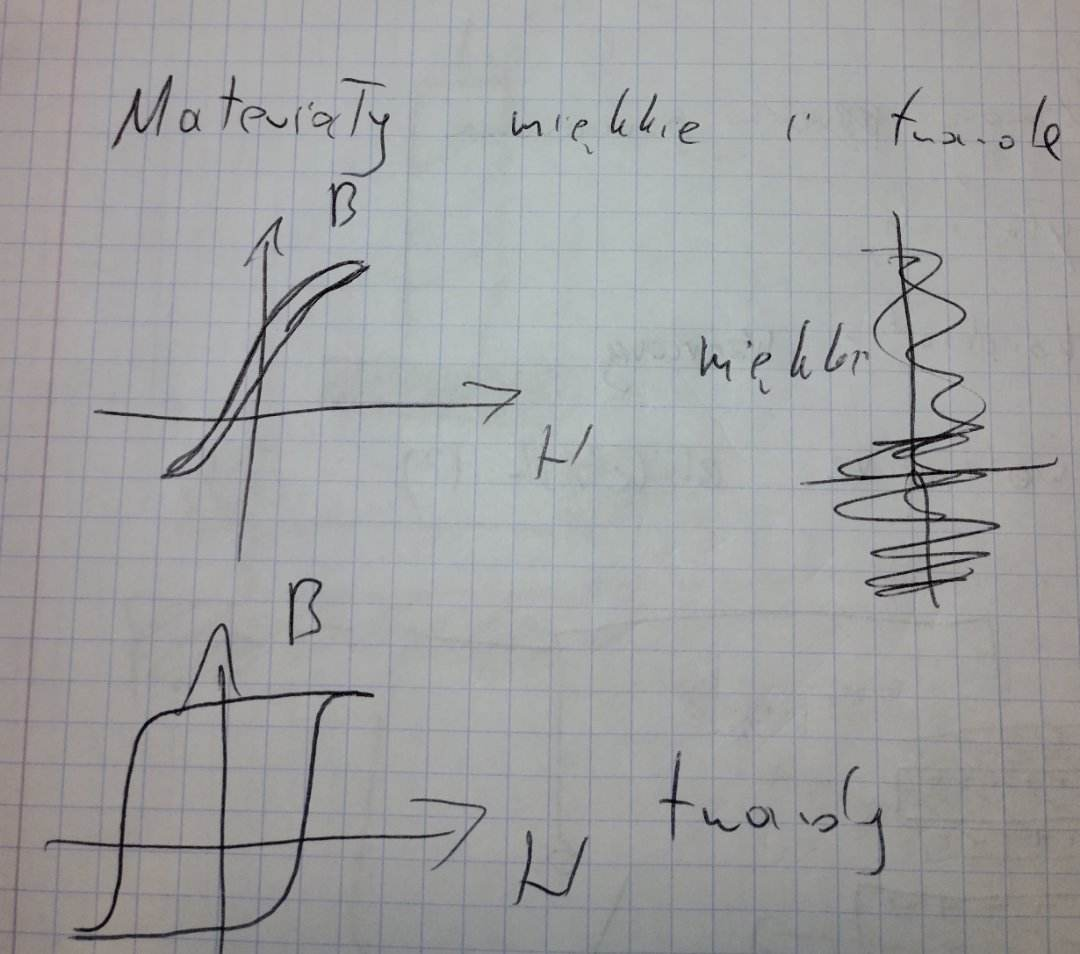 Materiały miękkie i twarde
B
miękki
H
B
twardy
H